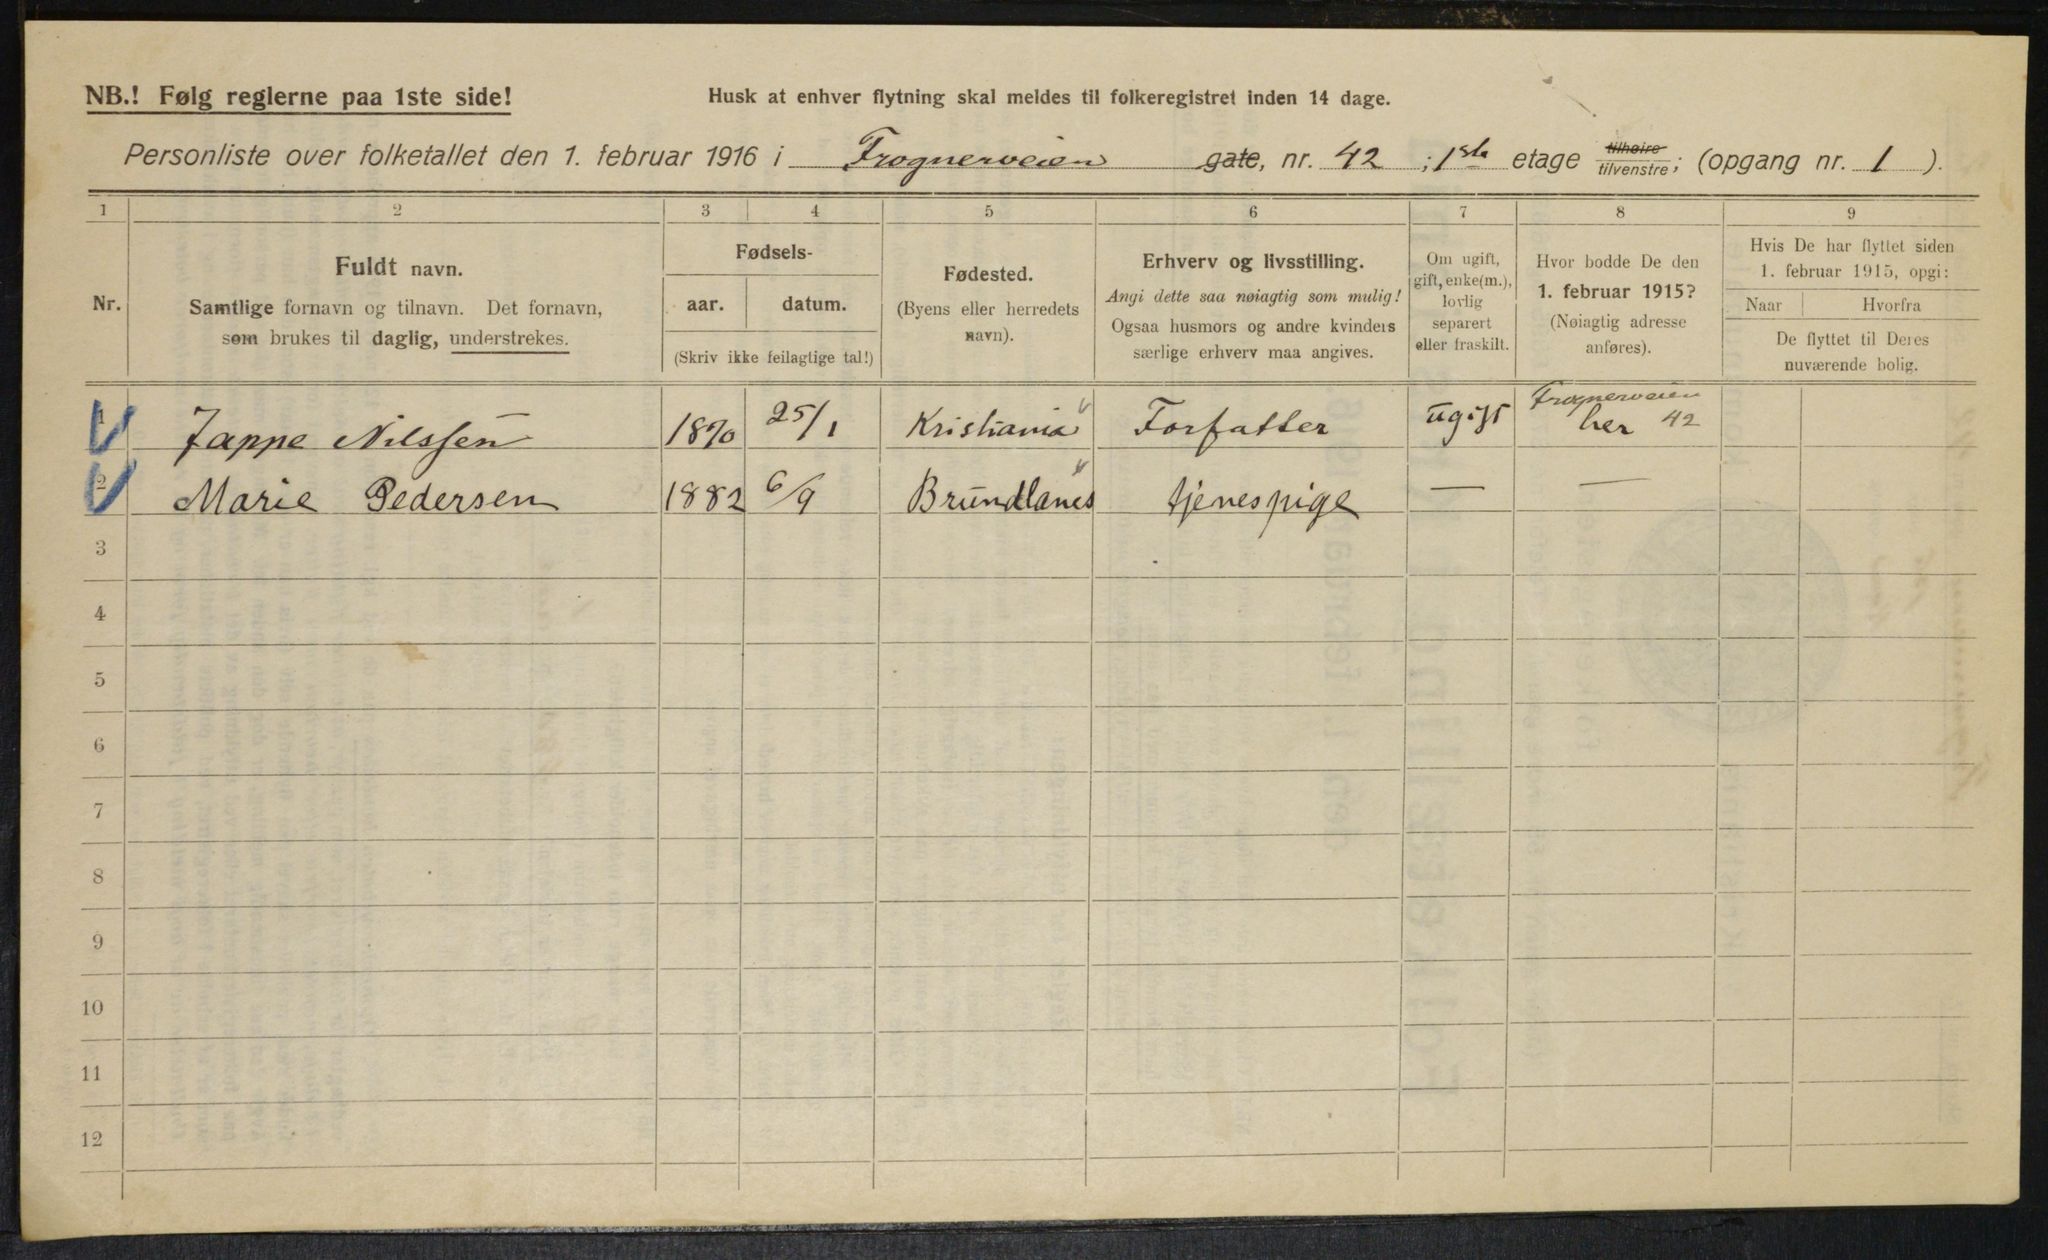 NB.! Følg reglerne paa 1ste side!
Husk at enhver flytning skal meldes til folkeregistret inden 14 dage.
Personliste over folketallet den 1. februar 1916 i Frognerveien gate, nr. 42 ; 1ste etage tilhøire tilvenstre; (opgang nr. 1 ).
1 2 3 4 5 6 7 8 9
Nr.
Fuldt navn.
Samtlige fornavn og tilnavn. Det fornavn,
som brukes til daglig, understrekes.
Fødsels-
aar. datum.
(Skriv ikke feilagtige tal!)
Fødested.
(Byens eller herredets
navn).
Erhverv og livsstilling.
Angi dette saa nøiagtig som mulig!
Ogsaa husmors og andre kvinders
særlige erhverv maa angives.
Om ugift,
gift, enke(m.),
lovlig
separert
eller fraskilt.
Hvor bodde De den
1. februar 1915?
(Nøiagtig adresse
anføres).
Hvis De har flyttet siden
1. februar 1915, opgi:
Naar Hvorfra
De flyttet til Deres
nuværende bolig.
1 Jappe Nilssen 1870 25/1 Kristiania Forfatter ugift Frognerveien her 42
2 Marie Pedersen 1882 6/9 Brundlanes tjenespige — —
3
4
5
6
7
8
9
10
11
12